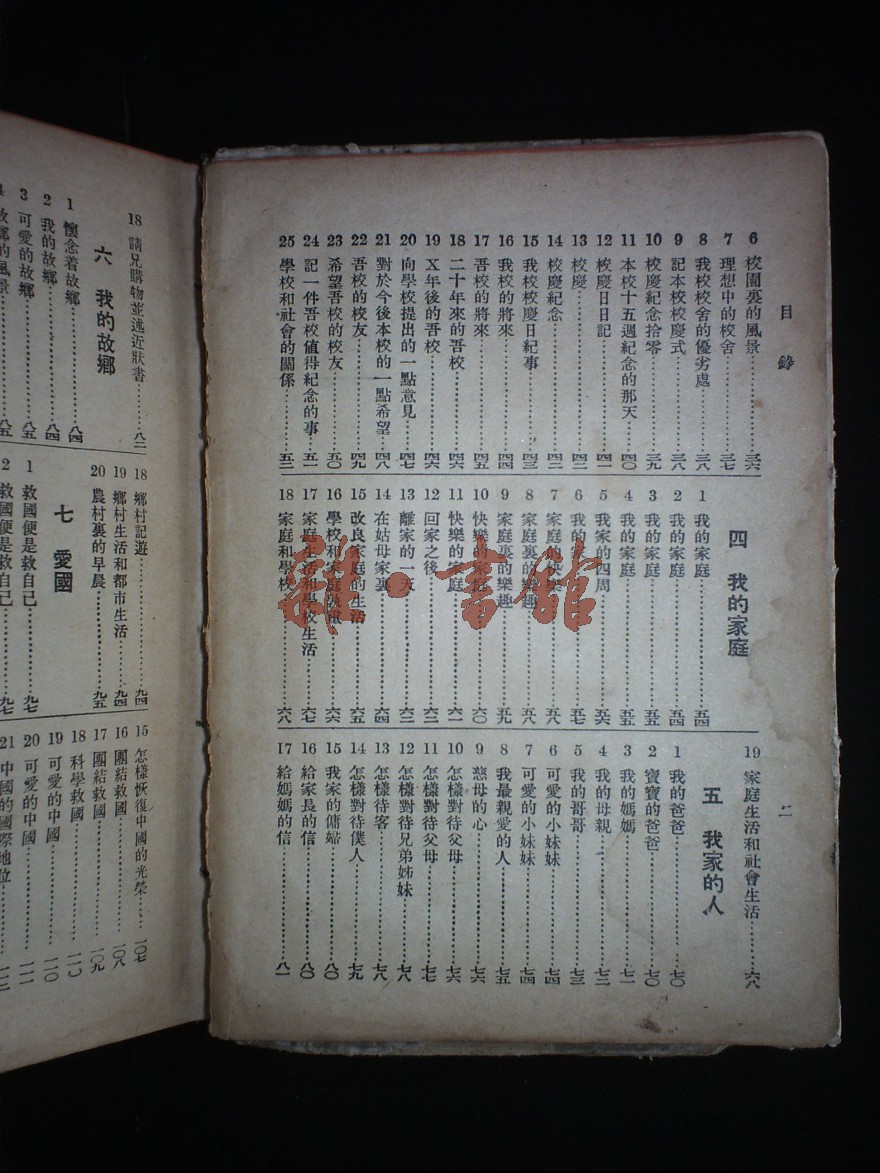 目錄
二
6 校園裏的風景……三六
7 理想中的校舍……三七
8 我校校舍的優劣處……三八
9 記本校校慶式……三八
10 校慶紀念拾零……三九
11 本校十五週紀念的那天……四〇
12 校慶日日記……四一
13 校慶……四二
14 校慶紀念……四三
15 我校校慶日紀事……四三
16 我校的將來……四四
17 吾校的將來……四五
18 二十年來的吾校……四六
19 X年後的吾校……四六
20 向學校提出的一點意見……四七
21 對於今後本校的一點希望……四八
22 吾校的校友……四九
23 希望吾校的校友……五〇
24 記一件吾校值得紀念的事……五一
25 學校和社會的關係……五二
四 我的家庭
1 我的家庭……五四
2 我的家庭……五四
3 我的家庭……五五
4 我的家庭……五五
5 我家的四周……五六
6 我的家……五七
7 家庭的快樂……五八
8 家庭裏的樂趣……五八
9 家庭裏的樂趣……五九
10 快樂的家庭……六〇
11 快樂的家庭……六一
12 回家之後……六二
13 離家的一天……六三
14 在姑母家裏……六四
15 改良家庭的生活……六五
16 學校和家庭……六六
17 家庭生活和學校生活……六七
18 家庭和學校……六八
19 家庭生活和社會生活……六八
五 我家的人
1 我的爸爸……七〇
2 寶寶的爸爸……七〇
3 我的媽媽……七一
4 我的母親……七二
5 我的哥哥……七三
6 可愛的小妹妹……七四
7 可愛的小妹妹……七四
8 我最親愛的人……七五
9 慈母的心……七六
10 怎樣對待父母……七六
11 怎樣對待父母……七七
12 怎樣對待兄弟姊妹……七八
13 怎樣待客……七八
14 怎樣對待僕人……七九
15 我家的傭婦……八〇
16 給家長的信……八〇
17 給媽媽的信……八一
18 請兄購物並述近狀書……八二
六 我的故鄉
1 懷念着故鄉……八四
2 我的故鄉……八四
3 可愛的故鄉……八五
4 故鄉的風景……八五
18 鄉村記遊……九四
19 鄉村生活和都市生活……九四
20 農村裏的早晨……九五
七 愛國
1 救國便是救自己……九七
2 救國便是救自己……九七
15 怎樣恢復中國的光榮……一〇七
16 團結救國……一〇八
17 團結救國……一〇九
18 科學救國……一一〇
19 可愛的中國……一一〇
20 可愛的中國……一一一
21 中國的國際地位……一一二
雜·書館